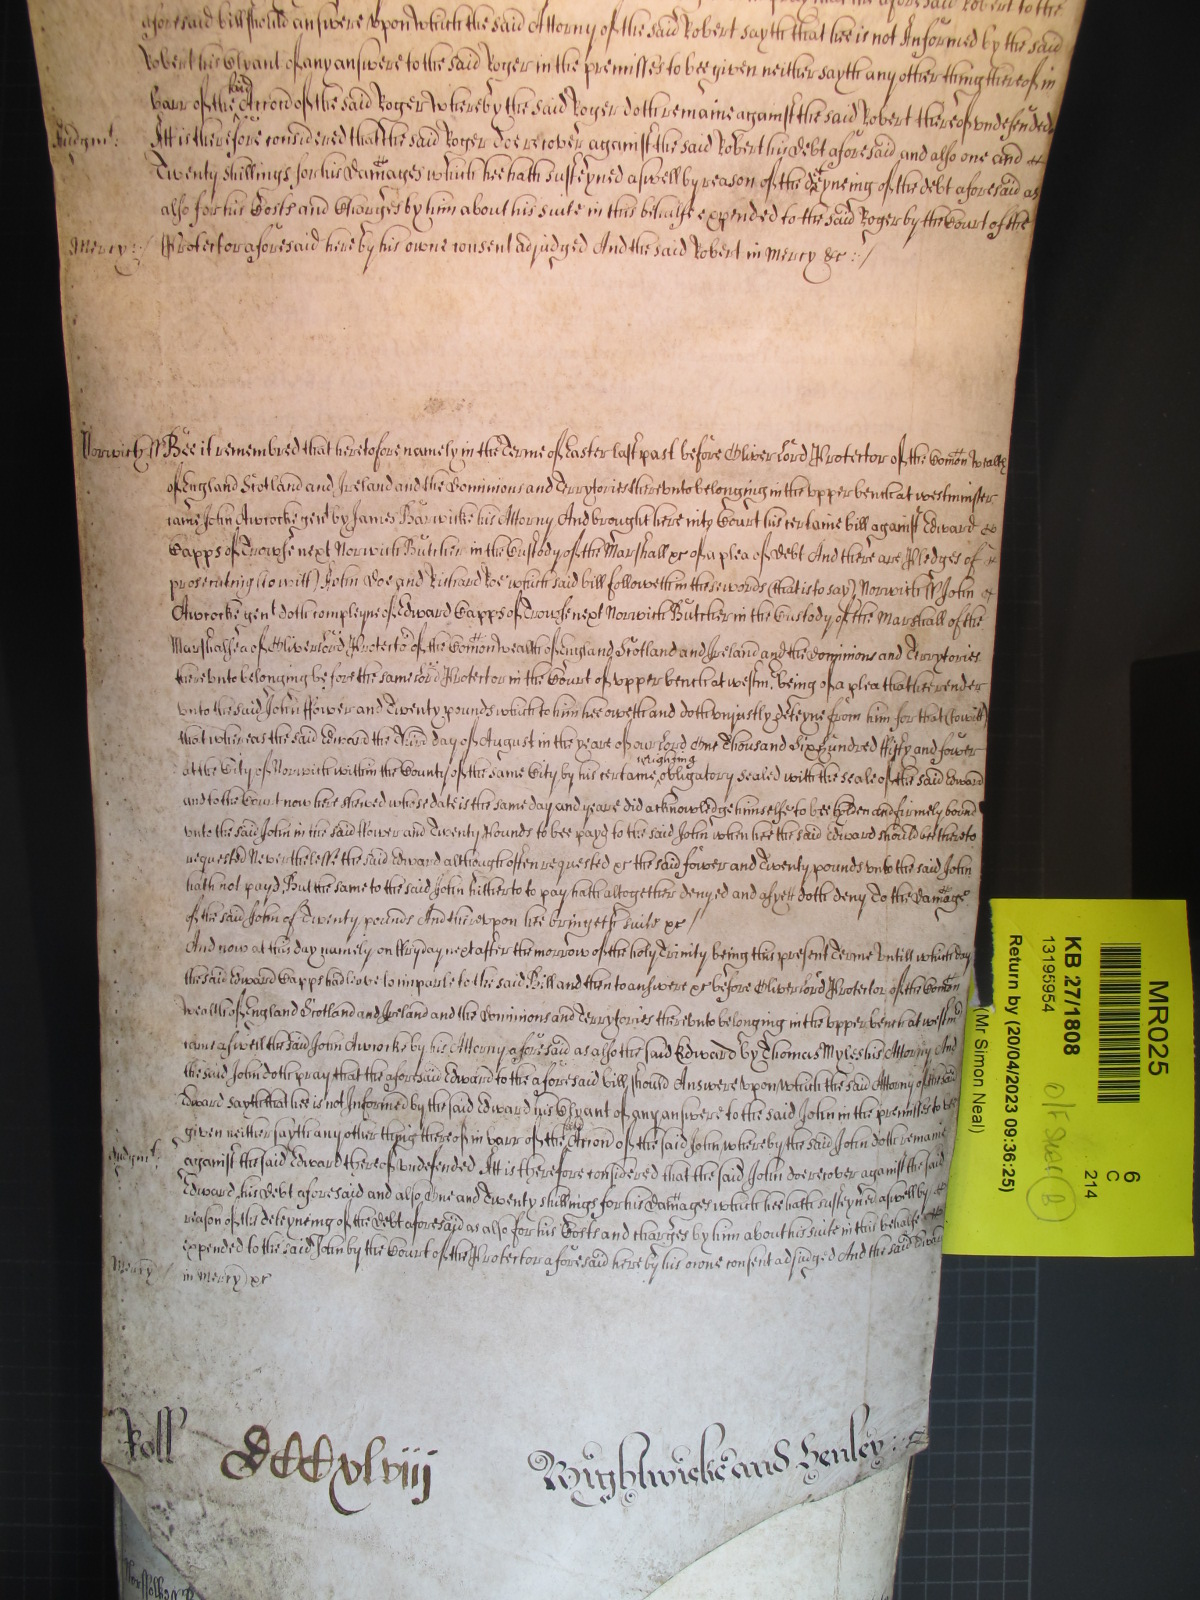 aforesaid bill should answere Upon which the said Attorny of the said Robert sayth that hee is not Informed by the said
Robert his Clyant of any answere to the said Roger in the premisses to bee given neither sayth any other thing thereof in
barr of the said Accion of the said Roger whereby the said Roger doth remaine against the said Robert thereof undefended
Judgmt: Itt is therefore considered that the said Roger doe recover against the said Robert his Debt aforesaid and also one and
Twenty shillings for his Damages which hee hath susteyned aswell by reason of the deteyneing of the debt aforesaid as
also for his Costs and Charges by him about his suite in this behalfe expended to the said Roger by the Court of the
Mercy :/ Protector aforesaid here by his owne consent adjudged And the said Robert in Mercy &c :/
Norwich ss Bee it remembred that heretofore namely in the Terme of Easter last past before Oliver Lord Protector of the Comon wealth
of England Scotland and Ireland and the Dominions and Terrytories thereunto belonging in the upper bench at westminster
came John Awcocke gent by James Barwicke his Attorny And brought here into Court his certaine bill against Edward
Capps of Trowse next Norwich Butcher in the Custody of the Marshall &c of a plea of Debt And there are Pledges of
prosecuting (to witt) John Doe and Richard Roe which said bill followeth in these words (that is to say) Norwich ss John
Awcocke gent doth compleyne of Edward Capps of Trowse next Norwich Butcher in the Custody of the Marshall of the
Marshallsea of Oliver Lord Protector of the Comon wealth of England Scotland and Ireland and the Dominions and Terrytories
thereunto belonging before the same lord Protector in the Court of upper bench at westmr. being of a plea that hee render
unto the said John ffower and Twenty pounds which to him hee oweth and doth unjustly deteyne from him for that (to witt)
that whereas the said Edward the Third day of August in the yeare of our Lord One Thousand Six hundred ffifty and fower
at the City of Norwich within the County of the same City by his certaine writing obligatory sealed with the seale of the said Edward
and to the Court now here shewed whose date is the same day and yeare did acknowledge himselfe to bee holden and firmely bound
unto the said John in the said ffower and Twenty Pounds to bee payd to the said John when hee the said Edward should bee thereto
requested Neverthelesse the said Edward although often requested &c the said fower and Twenty pounds unto the said John
hath not payd But the same to the said John hitherto to pay hath altogether denyed and as yett doth deny To the Damage
of the said John of Twenty pounds And thereupon hee bringeth suite &c /
And now at this day namely on ffryday next after the morrow of the holy Trinity being this present Terme Untill which day
the said Edward Capps had leave to imparle to the said Bill and then to answere &c before Oliver Lord Protector of the Comon
wealth of England Scotland and Ireland and the Dominions and Terrytories thereunto belonging in the upper bench at westmr
came aswell the said John Awcocke by his Attorny aforesaid as also the said Edward by Thomas Myles his Attorny And
the said John doth pray that the aforesaid Edward to the aforesaid bill should Answere Upon which the said Attorny of the said
Edward sayth that hee is not Informed by the said Edward his Clyant of any answere to the said John in the premisses to bee
given neither sayth any other thing thereof in barr of the said Accion of the said John whereby the said John doth remaine
Judgmt: against the said Edward thereof undefended Itt is therefore considered that the said John doe recover against the said
Edward his Debt aforesaid and also One and Twenty shillings for his Damages which hee hath susteyned aswell by
reason of the deteyneing of the Debt aforesaid as also for his Costs and charges by him about his suite in this behalfe
expended to the said John by the Court of the Protector aforesaid here by his owne consent adjudged And the said Edward
Mercy in Mercy &c
Roll DCCCxlviij Wightwicke and Henley
MR025
6
C
214
KB 27/1808
13195954
Return by (20/04/2023 09:36:25)
(Mr Simon Neal)